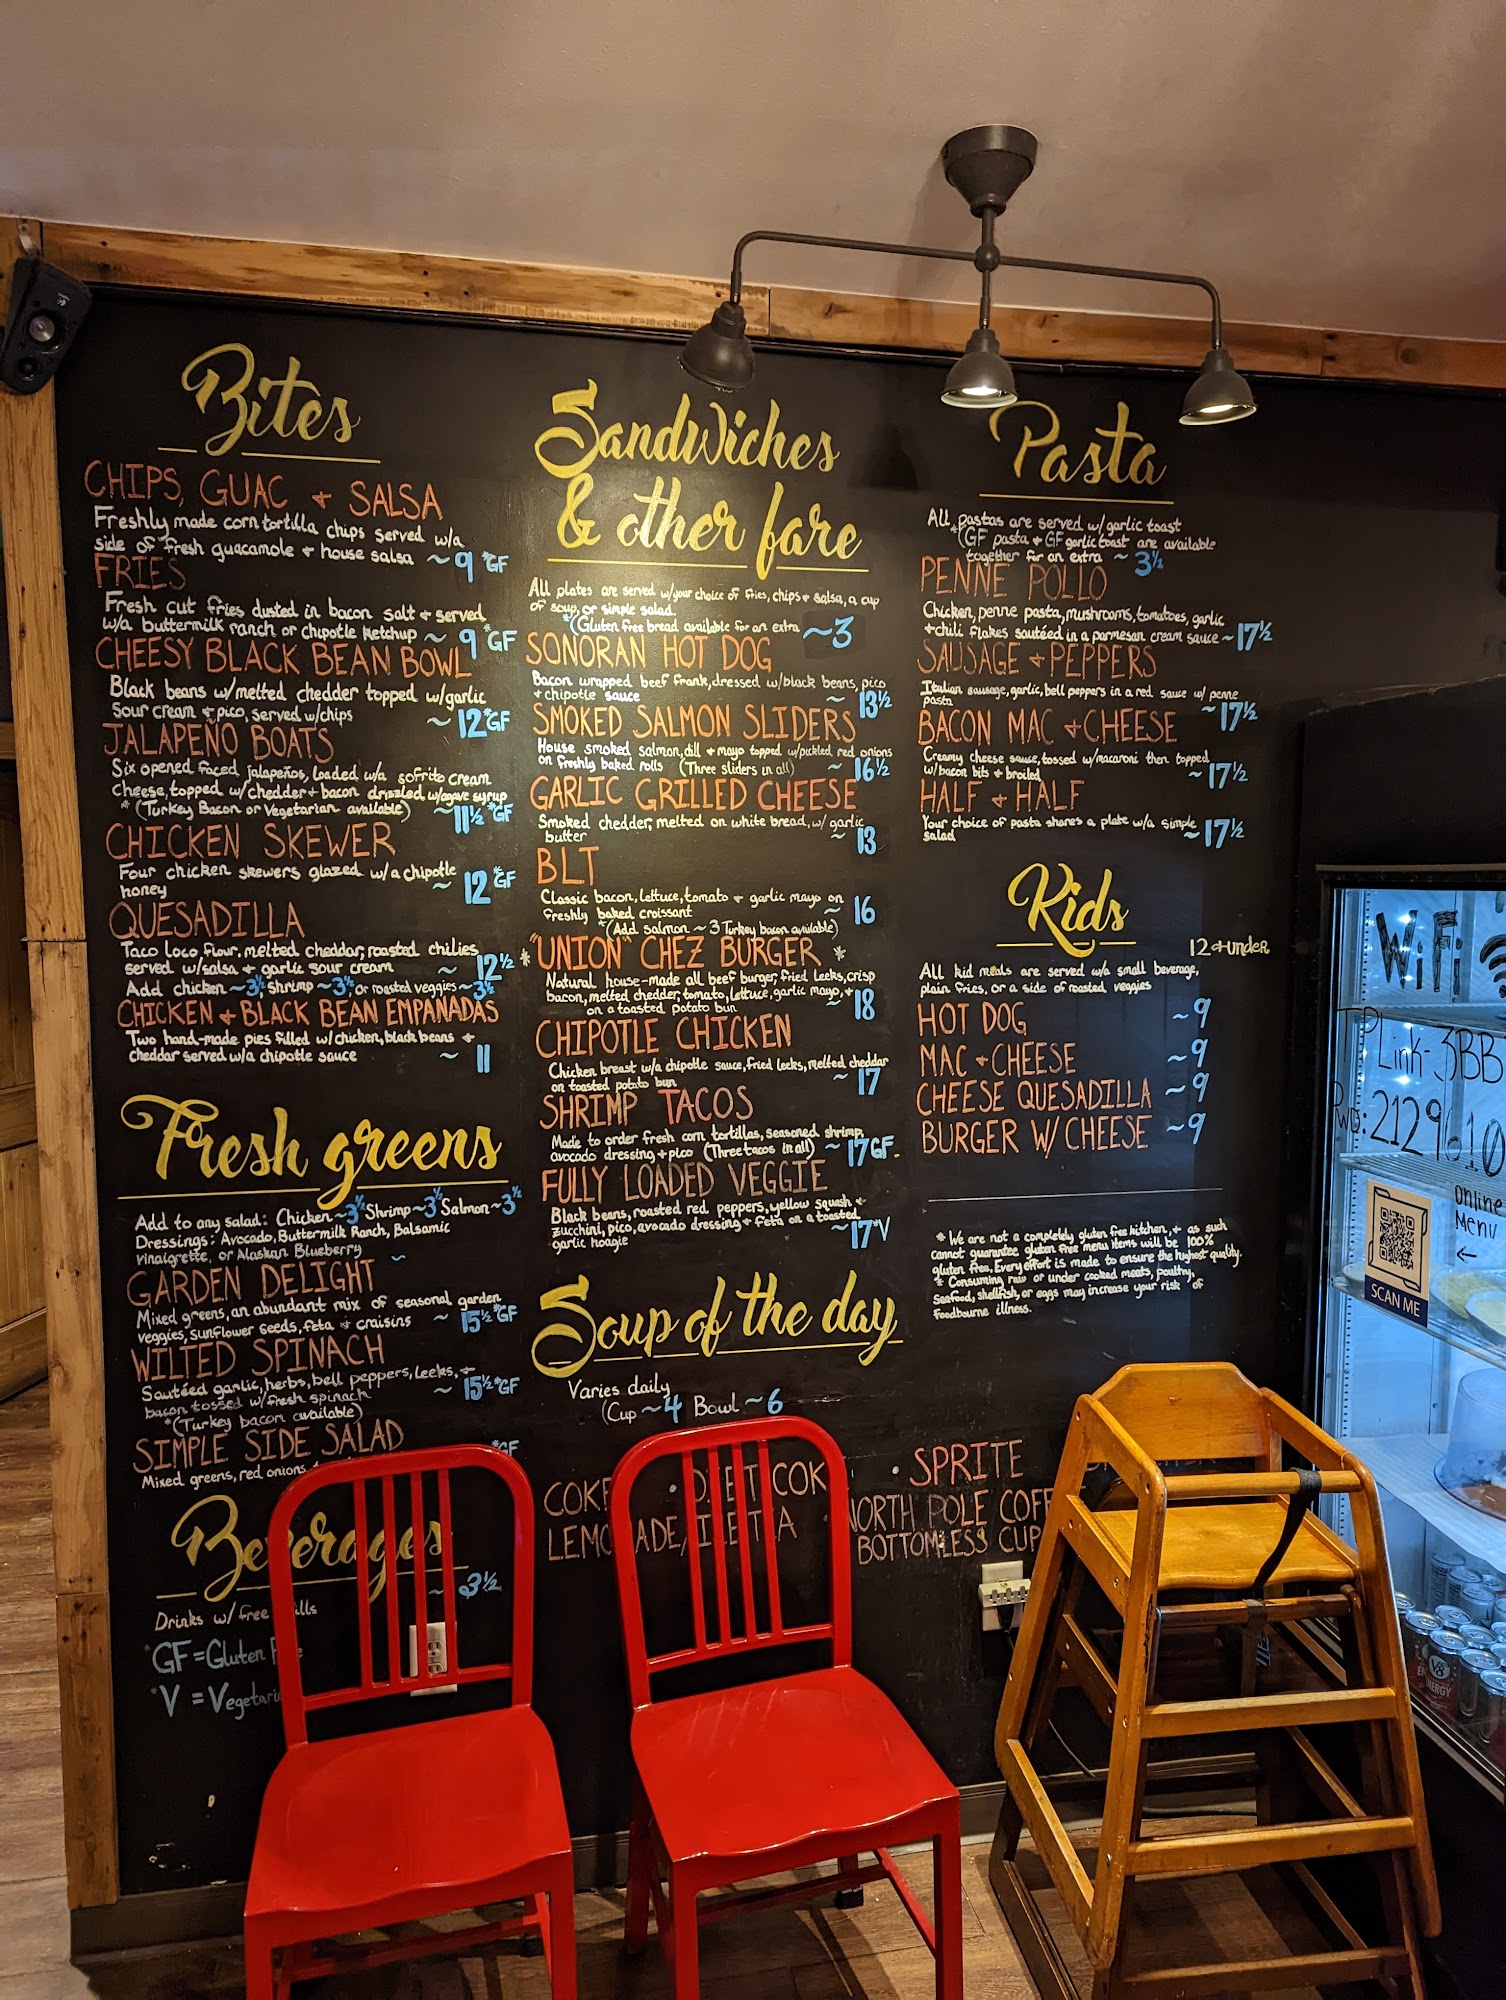 Bites
CHIPS, GUAC + SALSA
Freshly made corn tortilla chips served w/a
side of fresh guacamole + house salsa ~9 *GF
FRIES
Fresh cut fries dusted in bacon salt + served
w/a buttermilk ranch or chipotle ketchup ~9 *GF
CHEESY BLACK BEAN BOWL
Black beans w/melted chedder topped w/garlic
sour cream + pico, served w/chips ~12 *GF
JALAPEÑO BOATS
Six opened faced jalapeños, loaded w/a sofrito cream
cheese, topped w/chedder + bacon drizzled w/agave syrup
*(Turkey Bacon or Vegetarian available) ~11½ *GF
CHICKEN SKEWER
Four chicken skewers glazed w/a chipotle
honey ~12 *GF
QUESADILLA
Taco Loco flour, melted cheddar, roasted chilies,
served w/salsa + garlic sour cream ~12½
Add chicken ~3½, shrimp ~3½, or roasted veggies ~3½
CHICKEN + BLACK BEAN EMPANADAS
Two hand-made pies filled w/chicken, black beans +
cheddar served w/a chipotle sauce ~11
Fresh greens
Add to any salad: Chicken ~3½ Shrimp ~3½ Salmon ~3½
Dressings: Avocado, Buttermilk Ranch, Balsamic
vinaigrette, or Alaskan Blueberry ~
GARDEN DELIGHT
Mixed greens, an abundant mix of seasonal garden
veggies, sunflower seeds, feta + craisins ~15½ *GF
WILTED SPINACH
Sautéed garlic, herbs, bell peppers, leeks, +
bacon tossed w/fresh spinach ~15½ *GF
*(Turkey bacon available)
SIMPLE SIDE SALAD
*GF
Mixed greens, red onions
Beverages
~3½
Drinks w/ free
*GF=Gluten
*V =
Sandwiches
& other fare
All plates are served w/your choice of fries, chips + salsa, a cup
of soup, or simple salad.
*(Gluten free bread available for an extra ~3
SONORAN HOT DOG
Bacon wrapped beef frank, dressed w/black beans, pico
+ chipotle sauce ~13½
SMOKED SALMON SLIDERS
House smoked salmon, dill + mayo topped w/pickled red onions
on freshly baked rolls (Three sliders in all) ~16½
GARLIC GRILLED CHEESE
Smoked chedder, melted on white bread, w/ garlic
butter ~13
BLT
Classic bacon, lettuce, tomato + garlic mayo on
freshly baked croissant ~16
*(Add salmon ~3 Turkey bacon available)
*"UNION" CHEZ BURGER*
Natural house-made all beef burger, fried leeks, crisp
bacon, melted chedder, tomato, lettuce, garlic mayo, +
on a toasted potato bun ~18
CHIPOTLE CHICKEN
Chicken breast w/a chipotle sauce, fried leeks, melted cheddar
on toasted potato bun ~17
SHRIMP TACOS
Made to order fresh corn tortillas, seasoned shrimp,
avocado dressing + pico (Three tacos in all) ~17 GF
FULLY LOADED VEGGIE
Black beans, roasted red peppers, yellow squash +
zucchini, pico, avocado dressing + feta on a toasted
garlic hoagie ~17 *V
Soup of the day
Varies daily
(Cup ~4 Bowl ~6
• SPRITE
NORTH POLE
BOTTOMLESS CUP
Pasta
All pastas are served w/garlic toast
*(GF pasta + GF garlic toast are available
together for an extra ~3½
PENNE POLLO
Chicken, penne pasta, mushrooms, tomatoes, garlic
+ chili flakes sautéed in a parmesan cream sauce ~17½
SAUSAGE + PEPPERS
Italian sausage, garlic, bell peppers in a red sauce w/ penne
pasta ~17½
BACON MAC + CHEESE
Creamy cheese sauce, tossed w/macaroni then topped
w/bacon bits + broiled ~17½
HALF + HALF
Your choice of pasta shares a plate w/a simple
salad ~17½
Kids
12 + UNDER
All kid meals are served w/a small beverage,
plain fries, or a side of roasted veggies
HOT DOG ~9
MAC + CHEESE ~9
CHEESE QUESADILLA ~9
BURGER W/ CHEESE ~9
* We are not a completely gluten free kitchen, + as such
cannot guarantee gluten free menu items will be 100%
gluten free. Every effort is made to ensure the highest quality.
* Consuming raw or under cooked meats, poultry,
seafood, shellfish, or eggs may increase your risk of
foodbourne illness.
WiFi
Link-3BB
Online
Menu
←
SCAN ME
V8
ENERGY